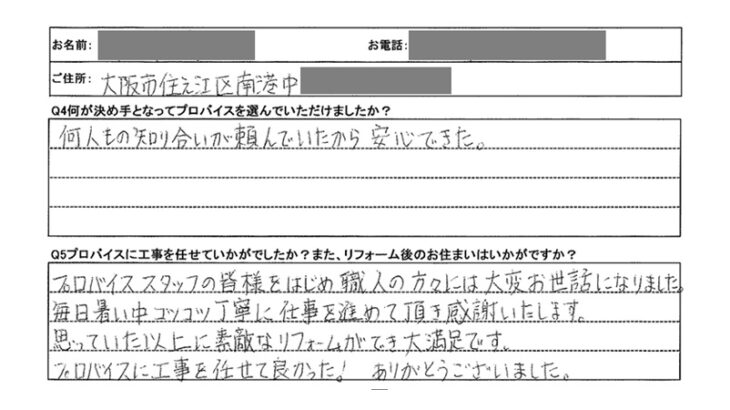 お名前: お電話:
ご住所: 大阪市住之江区南港中
Q4何が決め手となってプロバイスを選んでいただけましたか？
何人もの知り合いが頼んでいたから 安心できた。
Q5プロバイスに工事を任せていかがでしたか？また、リフォーム後のお住まいはいかがですか？
プロバイススタッフの皆様をはじめ職人の方々には大変お世話になりました。
毎日暑い中コツコツ丁寧に仕事を進めて頂き感謝いたします。
思っていた以上に素敵なリフォームができ大満足です。
プロバイスに工事を任せて良かった！ ありがとうございました。